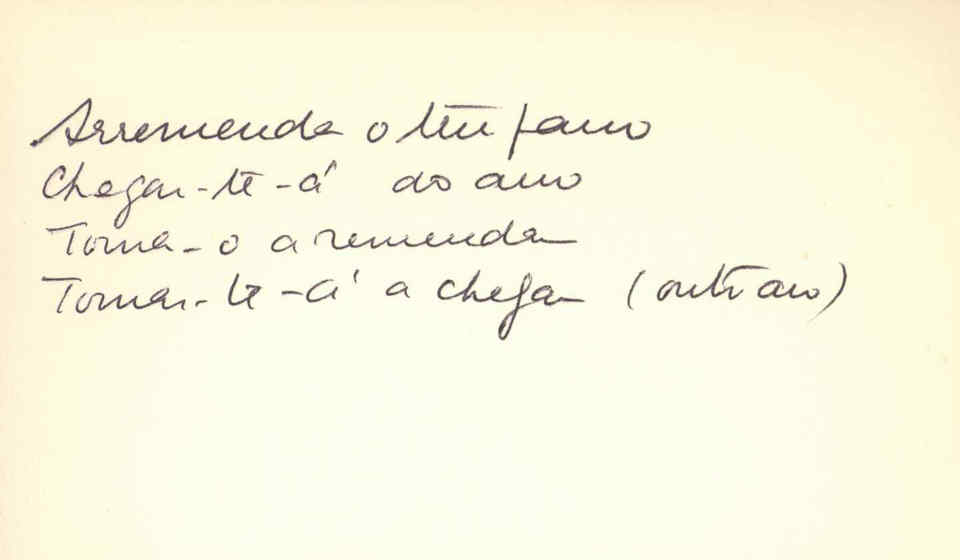 Arremenda o teu pano
Chegar-te-á ao ano
Torna-o a remendar
Tornar-te-á a chegar (outr ano)